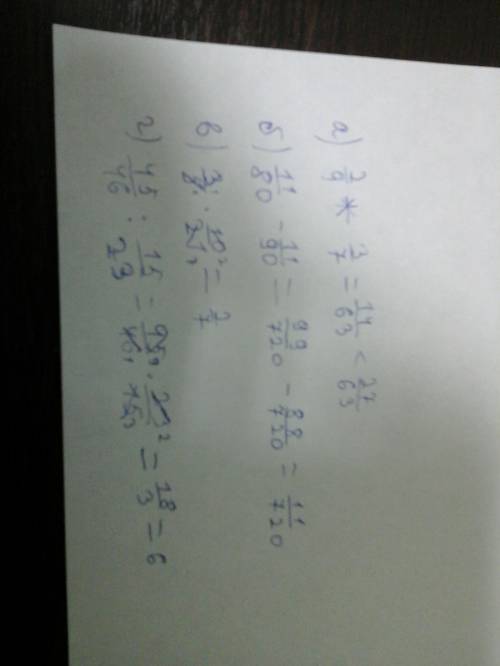 а) 2/9 * 3/7 = 14/63 < 27/63
б) 11/80 - 11/90 = 99/720 - 88/720 = 11/720
в) 3/8 · 16/21 = 2/7
г) 45/46 : 15/23 = 45/46 · 23/15 = 18/3 = 6